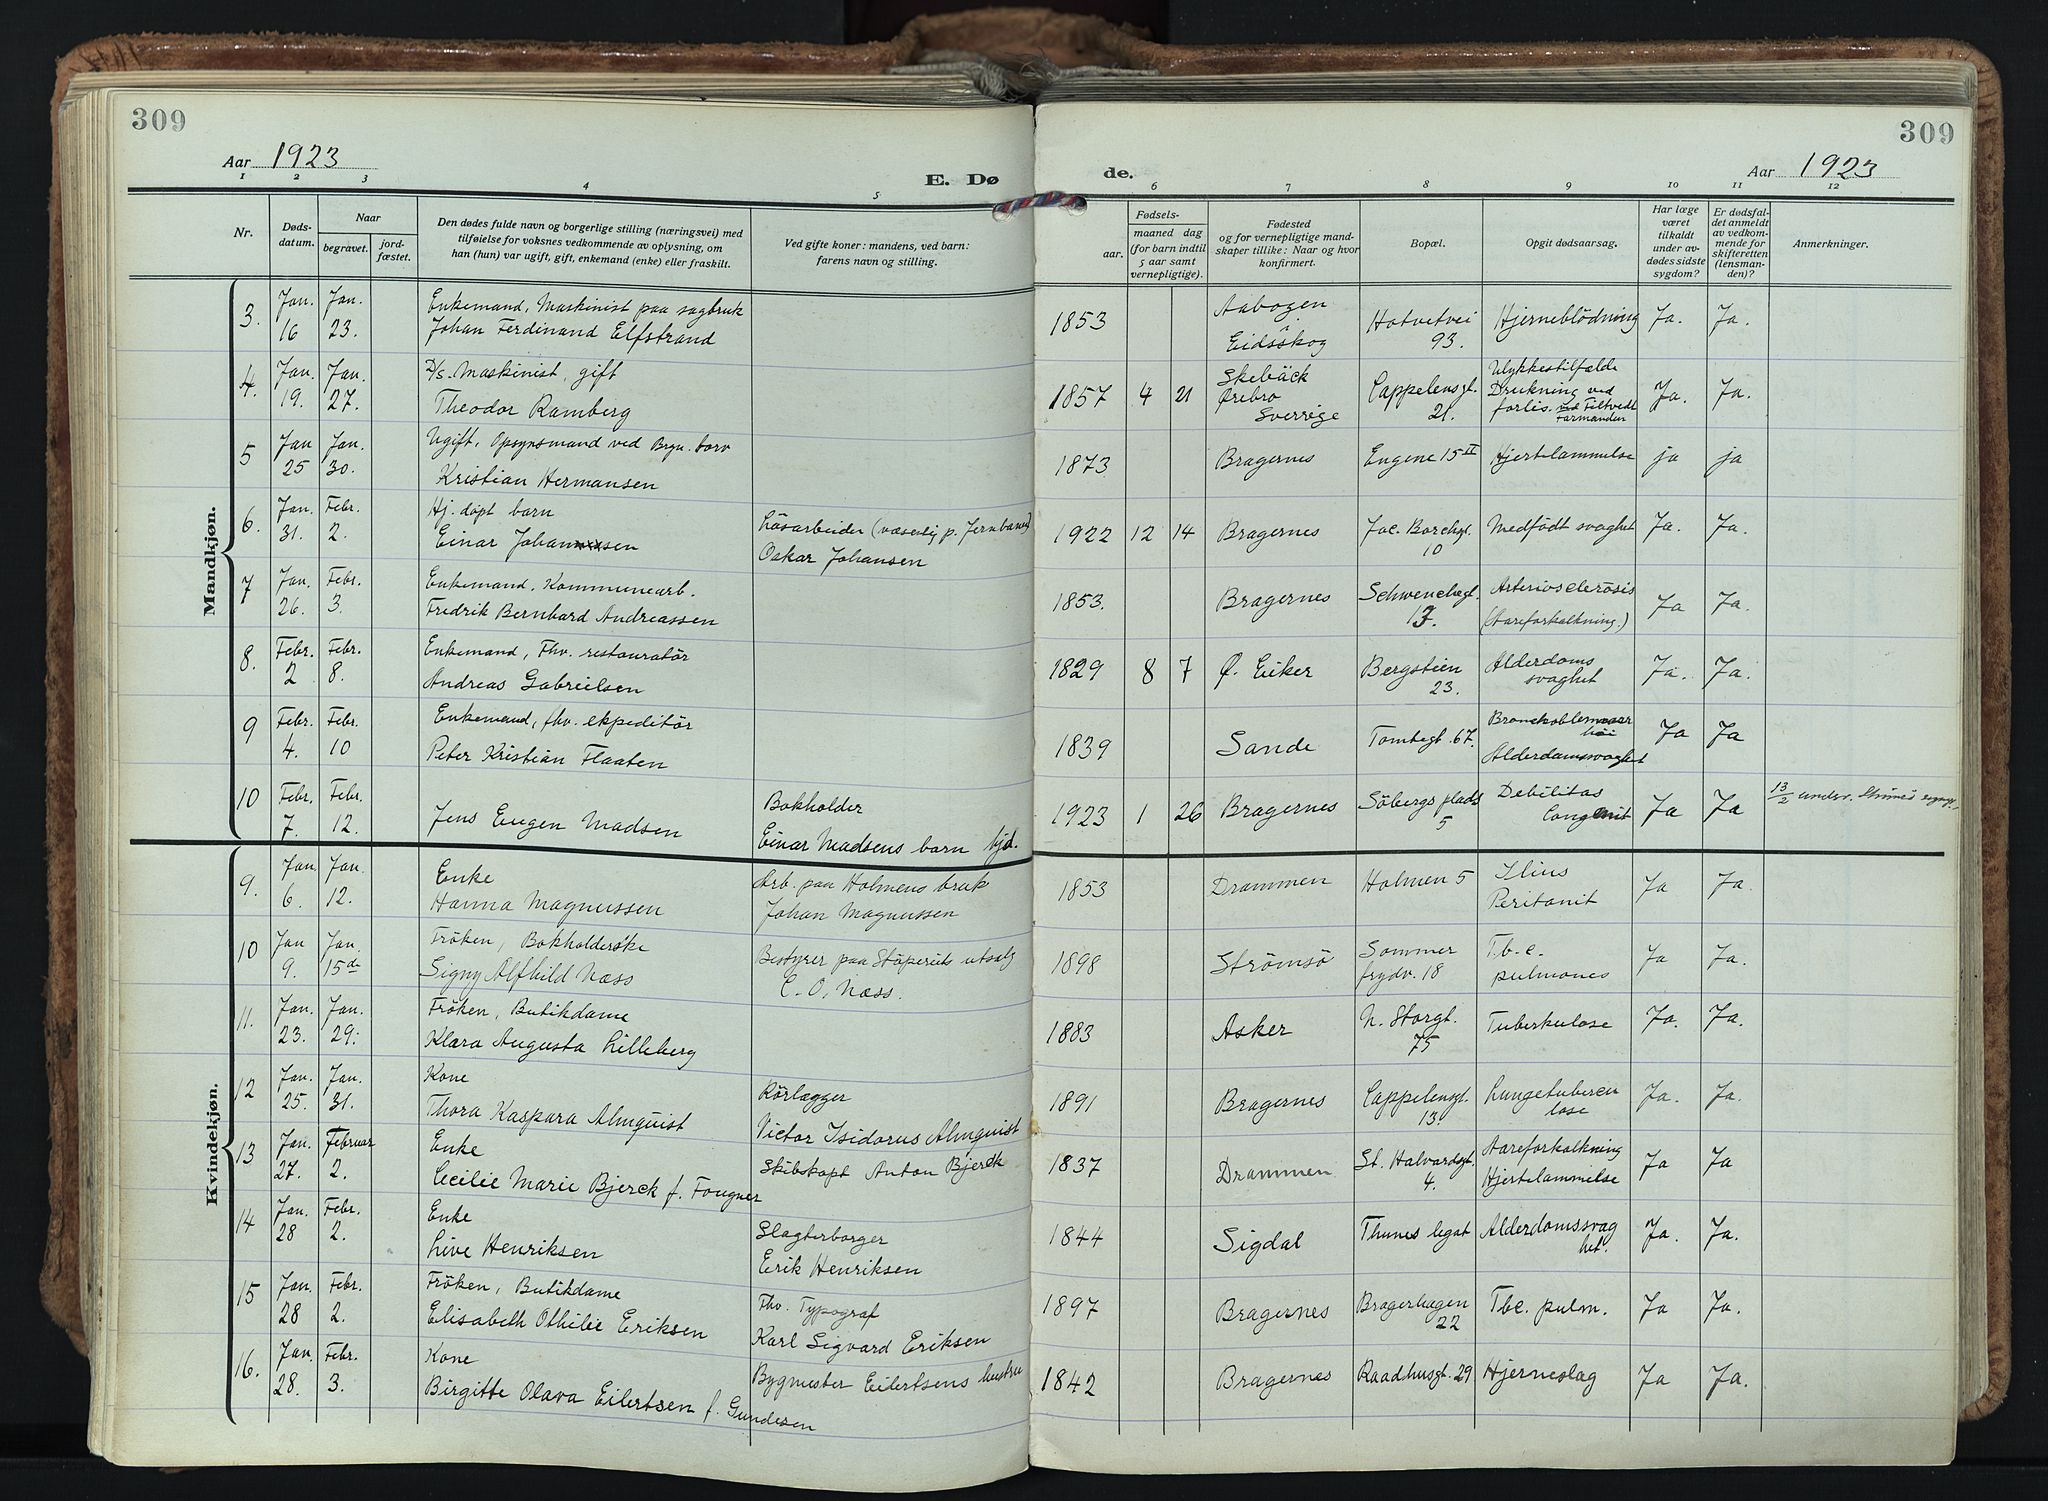 309
309
Aar 1923
E. Dø
de.
Aar 1923
1 2 3 4 5 6 7 8 9 10 11 12
Nr.
Døds-
datum.
Naar
begravet.
jord-
fæstet.
Den dødes fulde navn og borgerlige stilling (næringsvei) med
tilføielse for voksnes vedkommende av oplysning, om
han (hun) var ugift, gift, enkemand (enke) eller fraskilt.
Ved gifte koner: mandens, ved barn:
farens navn og stilling.
Fødsels-
aar.
maaned dag
(for barn indtil
5 aar samt
vernepligtige).
Fødested
og for vernepligtige mand-
skaper tillike: Naar og hvor
konfirmert.
Bopæl.
Opgit dødsaarsag.
Har læge
været
tilkaldt
under av-
dødes sidste
sygdom?
Er dødsfal-
det anmeldt
av vedkom-
mende for
skifteretten
(lensman-
den)?
Anmerkninger.
Mandkjøn.
3. Jan. 16 Jan. 23. Enkemand, Maskinist paa sagbruk
Johan Ferdinand Elfstrand
1853 Aabogen Eidsskog Hotvetvei 93. Hjerneblödning Ja. Ja.
4. Jan. 19. Jan. 27. D/s. Maskinist, gift
Theodor Ramberg
1857 4 21 Skebäck Örebro Sverrige Cappelensgt. 21. Ulykkestilfælde
Drukning ved
forlis. ved Filtvedt
Farmanden Ja. Ja.
5 Jan 25 Jan. 30. Ugift, Opsynsmand ved Bryn. torv
Kristian Hermansen
1873 Bragernes Engene 15 II Hjertelammelse ja ja
6. Jan. 31. Febr. 2. Hj. döpt barn
Einar Johansen
Lösarbeider (væsenlig p. Jernbanen)
Oskar Johansen
1922 12 14 Bragernes Jac. Borchsgt. 10 Medfödt svaghet Ja. Ja.
7 Jan. 26. Febr. 3. Enkemand, Kommunearb.
Fredrik Bernhard Andreassen
1853. Bragernes Schwenchsgt. 17. Arteriosclerosis
(Aareforkalkning.) Ja Ja.
8. Febr. 2 Febr. 8. Enkemand, Fhv. restauratör
Andreas Gabreilsen
1829 8 7 Ø. Eiker Bergstien 23. Alderdoms
svaghet Ja. Ja.
9 Febr. 4. Febr. 10 Enkemand, fhv. ekpeditör
Peter Kristian Flaaten
1839 Sande Tomtegt. 67.
Alderdomsvaghet Ja Ja
10 Febr. 7. Febr. 12. Jens Eugen Madsen
Bokholder
Einar Madsens barn hjd.
1923 1 26 Bragernes Söbergs plads 5 Debilitas
Congenit Ja Ja 13/2 underr.
Kvindekjøn.
9. Jan. 6. Jan. 12. Enke
Hanna Magnussen
Arb. paa Holmens bruk
Johan Magnussen
1853 Drammen Holmen 5 Ilius
Peritonit Ja Ja.
10 Jan 9. Jan. 15de Fröken, Bokholderske
Signy Alfhild Næss
Bestyrer paa Stöperiets utsalg
C. O. Næss.
1898 Strømsö Sommer
frydv. 18 T.b.c.
pulmones Ja Ja.
11. Jan. 23. Jan. 29. Fröken, Butikdame
Klara Augusta Lilleberg
1883 Asker N. Storgt. 75 Tuberkulose Ja. Ja.
12 Jan. 25. Jan. 31. Kone
Thora Kaspara Almquist
Rörlægger
Victor Isidorus Almquist
1891 Bragernes Cappelensgt. 13. Lungetubercu
lose Ja. Ja.
13 Jan. 27. Februar 2. Enke
Cecilie Marie Bjerck f. Fougner
Skibskapt Anton Bjerck
1837 Drammen St. Halvardsgt. 4. Aareforkalkning
Hjertelammelse Ja Ja
14 Jan. 28 Febr. 2. Enke
Live Henriksen
Slagterborger
Erik Henriksen
1844 Sigdal Thunes legat Alderdomssvag
het. Ja. Ja.
15 Jan. 28 Febr. 2. Fröken, Butikdame
Elisabeth Othilie Eriksen
Fhv. Typograf
Karl Sigvard Eriksen
1897 Bragernes Bragerhagen 22 Tbc. pulm. Ja Ja.
16. Jan. 28. Febr. 3. Kone
Birgitte Olava Eilertsen f. Gundesen
Bygmester Eilertsens hustru
1842 Bragernes Raadhusgt. 29 Hjerneslag Ja Ja.